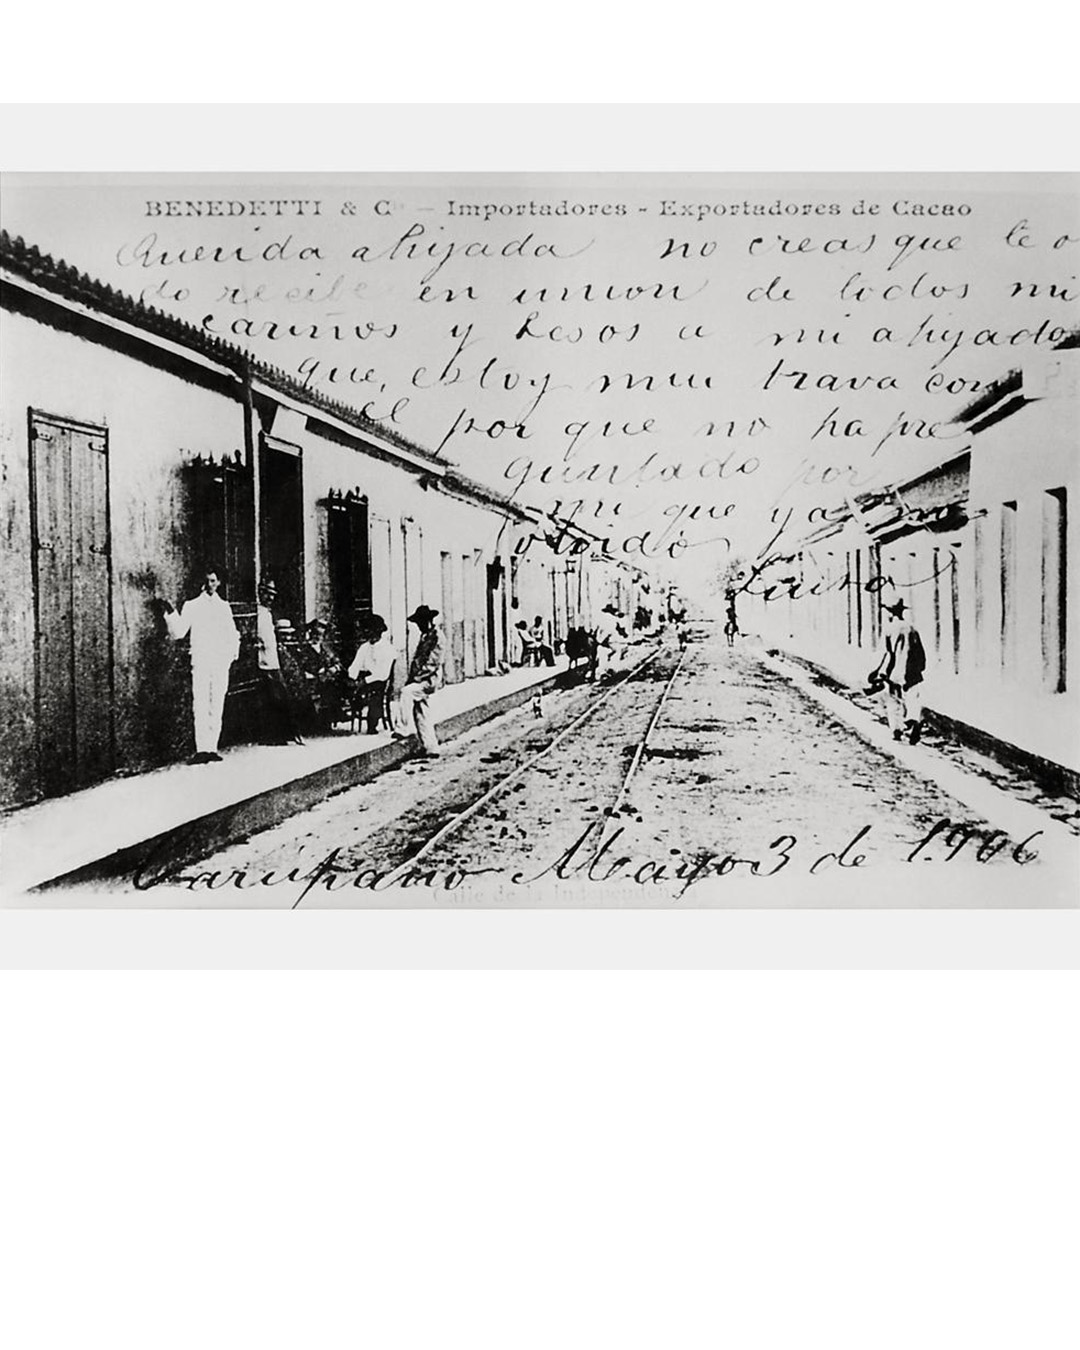 BENEDETTI & Cª — Importadores - Exportadores de Cacao
Querida ahijada no creas que te o
do recibe en union de todos mi
cariños y besos a mi ahijado
que, estoy mui brava con
el por que no ha pre
guntado por
mi que ya me
olvidó
Carúpano Mayo 3 de 1.906
Calle de la Independencia